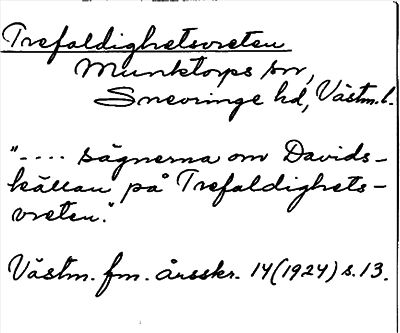 Trefaldighetsvreten
Munktorps sn,
Snevringe hd, Västm.l.
"---- sägnerna om Davids-
källan på Trefaldighets-
vreten."
Västm. fm. årsskr. 14(1924) s. 13.